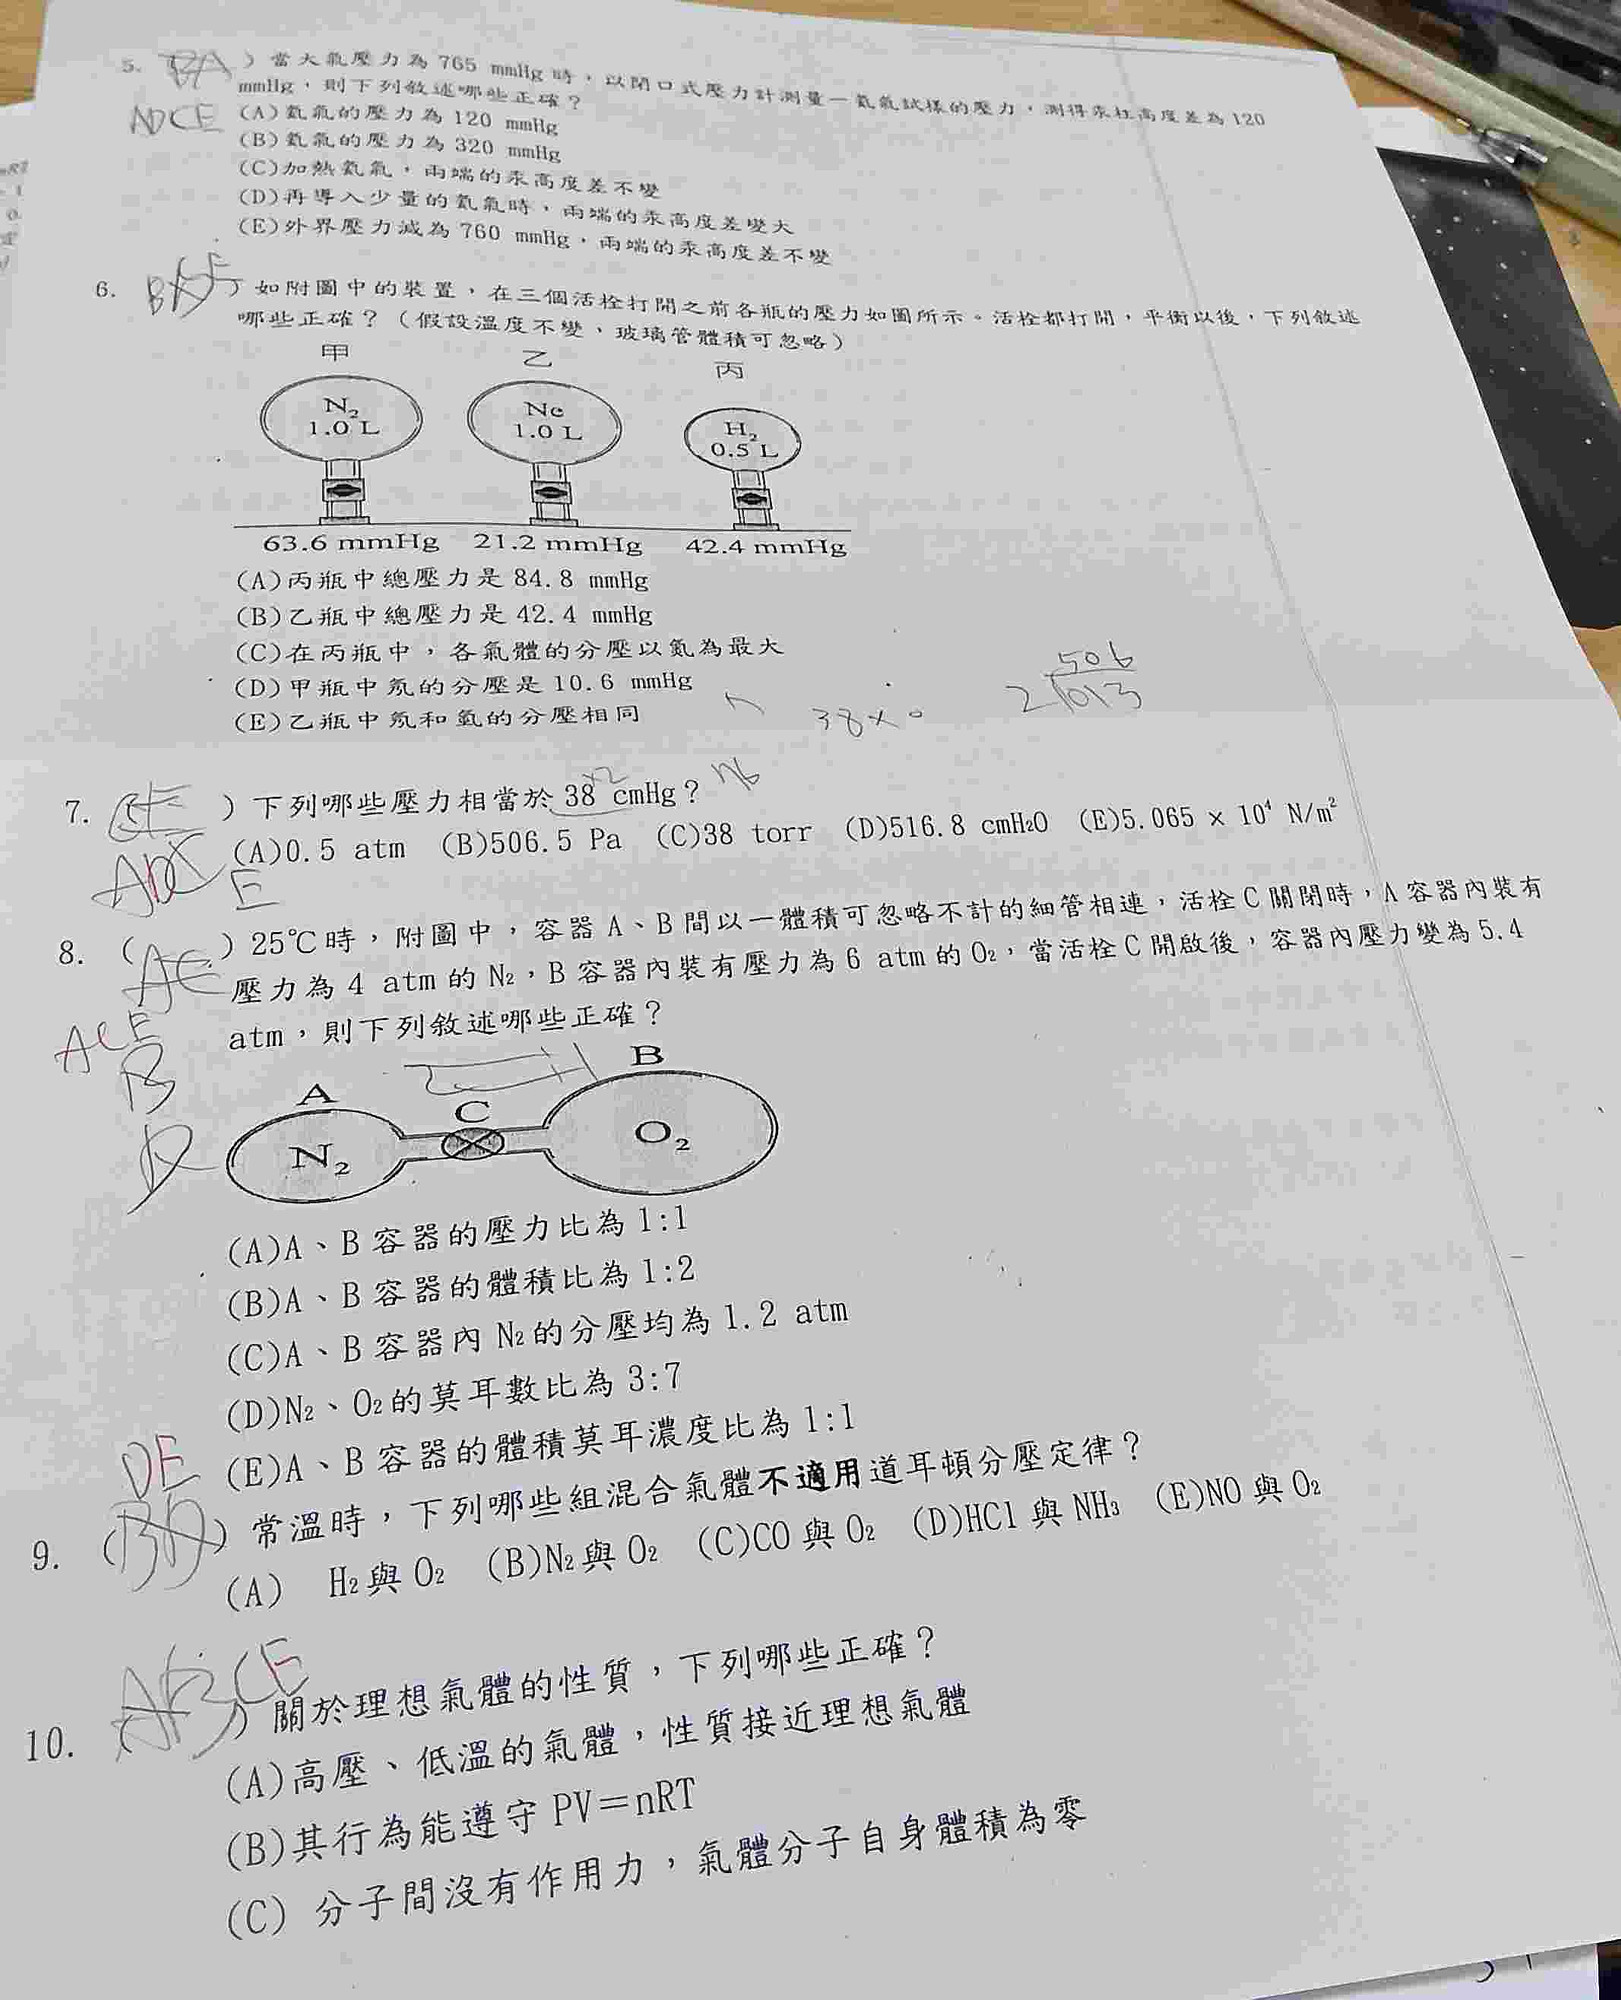 5. BA )當大氣壓力為 765 mmHg 時,以閉口式壓力計測量一氦氣試樣的壓力,測得汞柱高度差為 120
mmHg,則下列敘述哪些正確?
ADCE (A)氦氣的壓力為 120 mmHg
(B)氦氣的壓力為 320 mmHg
(C)加熱氦氣,兩端的汞高度差不變
(D)再導入少量的氦氣時,兩端的汞高度差變大
(E)外界壓力減為 760 mmHg,兩端的汞高度差不變
6. )如附圖中的裝置,在三個活栓打開之前各瓶的壓力如圖所示。活栓都打開,平衡以後,下列敘述
哪些正確?(假設溫度不變、玻璃管體積可忽略)
甲 乙 丙
N₂ Ne H₂
1.0 L 1.0 L 0.5 L
63.6 mmHg 21.2 mmHg 42.4 mmHg
(A)丙瓶中總壓力是 84.8 mmHg
(B)乙瓶中總壓力是 42.4 mmHg
(C)在丙瓶中,各氣體的分壓以氮為最大
(D)甲瓶中氖的分壓是 10.6 mmHg
(E)乙瓶中氖和氫的分壓相同
38×0
506
2 1013
×2 76
7. )下列哪些壓力相當於 38 cmHg?
(A)0.5 atm (B)506.5 Pa (C)38 torr (D)516.8 cmH₂O (E)5.065 × 10⁴ N/m²
E
8. ( AC )25℃時,附圖中,容器 A、B 間以一體積可忽略不計的細管相連,活栓 C 關閉時,A 容器內裝有
壓力為 4 atm 的 N₂,B 容器內裝有壓力為 6 atm 的 O₂,當活栓 C 開啟後,容器內壓力變為 5.4
atm,則下列敘述哪些正確?
ACE
B
A C B
N₂ O₂
(A)A、B 容器的壓力比為 1:1
(B)A、B 容器的體積比為 1:2
(C)A、B 容器內 N₂的分壓均為 1.2 atm
(D)N₂、O₂的莫耳數比為 3:7
(E)A、B 容器的體積莫耳濃度比為 1:1
DE
9. ( BD )常溫時,下列哪些組混合氣體不適用道耳頓分壓定律?
(A) H₂與 O₂ (B)N₂與 O₂ (C)CO 與 O₂ (D)HCl 與 NH₃ (E)NO 與 O₂
10. ( ABCE )關於理想氣體的性質,下列哪些正確?
(A)高壓、低溫的氣體,性質接近理想氣體
(B)其行為能遵守 PV=nRT
(C) 分子間沒有作用力,氣體分子自身體積為零